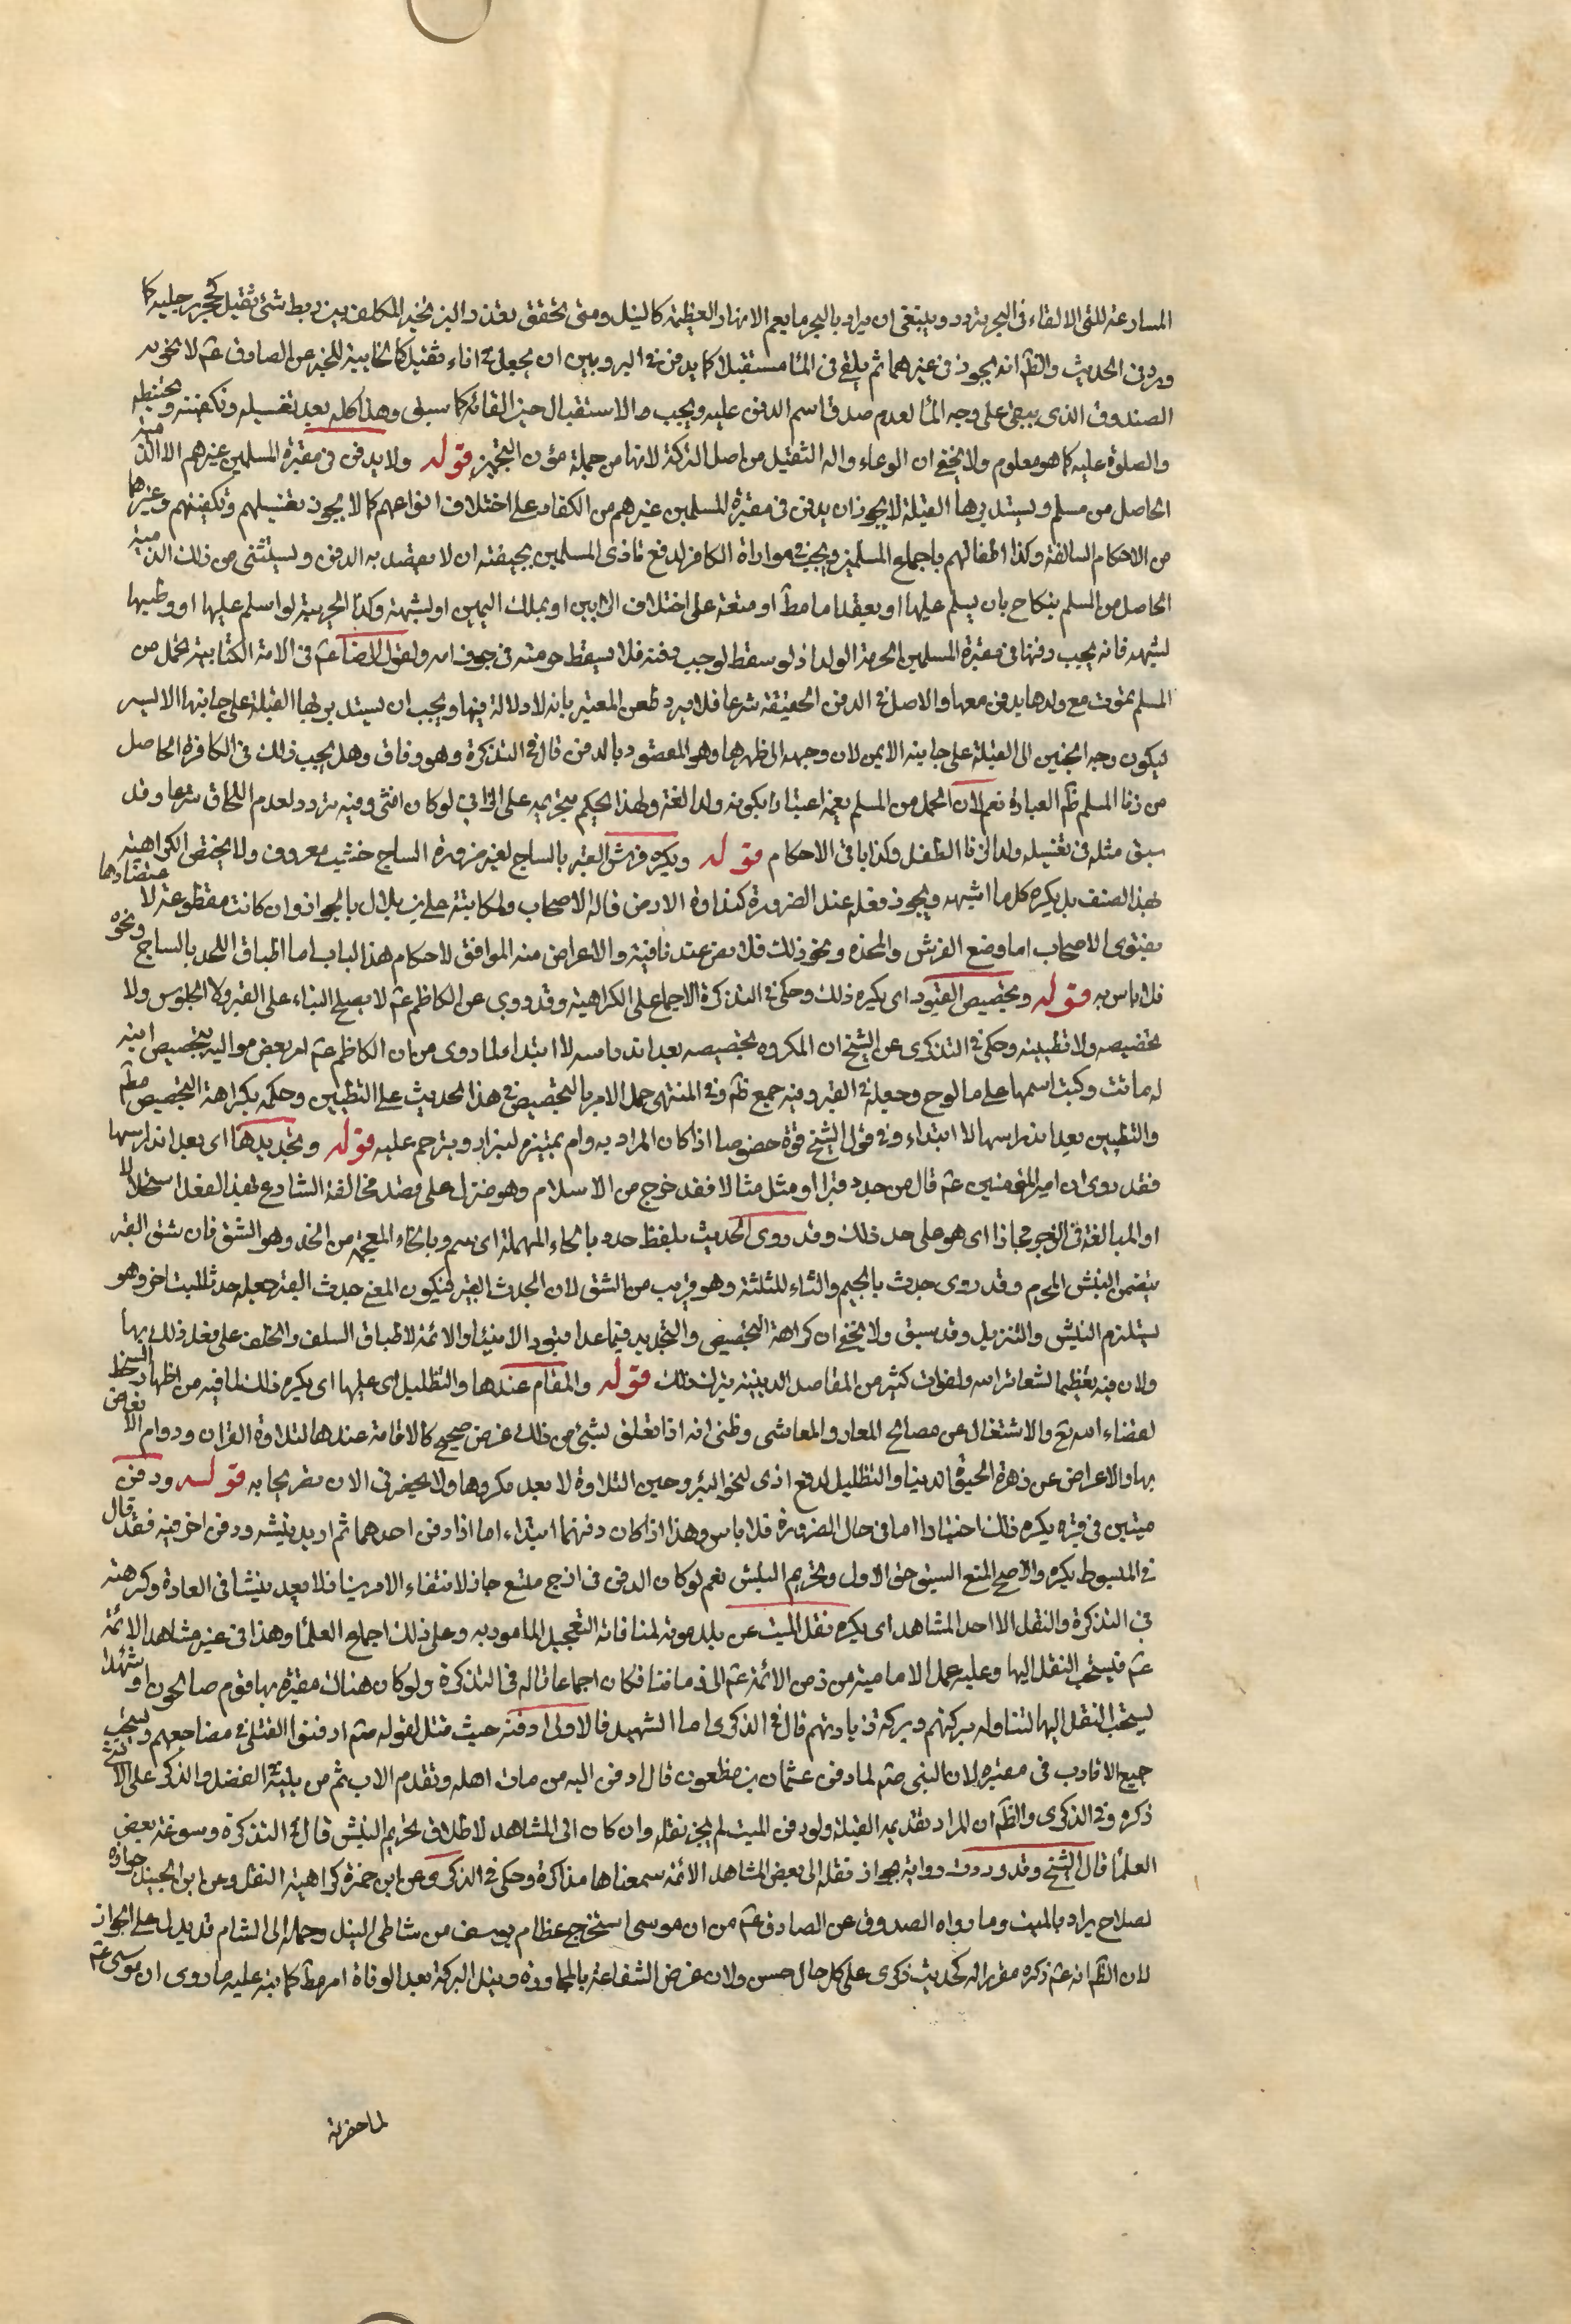 المسارعة للثى الالقاء فى البحر تردد وينبغى ان يراد بالبحر ما يعم الانهار العظيمة كالنيل ومتى تحقق تعذر البر تخير المكلف بين ربط شئ ثقيل كحجر برجليه كما
ورد فى الحديث والظ انه يجوز فى غيرهما ثم يلقى فى الماء مستقبلا كما يدفن فى البر وبين ان يجعل فى اناء ثقيل كالخابية للخبر عن الصادق عم لا نحو
الصندوق الذى يبقى على وجه الماء لعدم صدق اسم الدفن عليه ويجب الاستقبال حين القائه كما سبق وهذا كله بعد تغسيله وتكفينه وتحنيطه
والصلوة عليه كما هو معلوم ولا يخفى ان الوعاء والة التثقيل من اصل التركة لانها من جملة مؤن التجهيز قوله ولا يدفن فى مقبرة المسلمين غيرهم الا الذمية
الحاصل من مسلم ويستدبر بها القبلة لا يجوز ان يدفن فى مقبرة المسلمين غيرهم من الكفار على اختلاف انواعهم كما لا يجوز تغسيلهم وتكفينهم وغيرهما
من الاحكام السالفة وكذا اطفالهم باجماع المسلمين ويجب فى مواراة الكافر لدفع تاذى المسلمين بجيفته ان لا يقصد به الدفن ويستثنى من ذلك الذمية
الحاصل من المسلم بنكاح بان يسلم عليها او بعقدنا مط او متعة على اختلاف الرايين او بملك اليمين او بشبهة وكذا الحربية لو اسلم عليها او وطيها
لشبهه فانه يجب دفنها فى مقبرة المسلمين لحرمة الولد اذ لو سقط لوجب دفنه فلا يسقط حرمته فى جوف امه ولقول الرضا عم فى الامة الكتابية تحمل من
المسلم تموت مع ولدها يدفن معها والاصل فى الدفن الحقيقة شرعا فلا يرد طعن المعتبر بانه لا دلالة فيها ويجب ان يستدبر بها القبلة على جانبها الايسر
ليكون وجه الجنين الى القبلة على جانبه الايمن لان وجهه الى ظهرها وهو المقصود بالدفن قال فى التذكرة وهو وفاق وهل يجب ذلك فى الكافرة الحاصل
من زنا المسلم ظ العبارة نعم لان الحمل من المسلم يعمه اعتبارا بكونه ولدا لغة ولهذا يحكم بتحريمه على الزانى لو كان انثى وفيه تردد لعدم اللحاق شرعا وقد
سبق مثله فى تغسيله ولد الزنا الطفل وكذا باقى الاحكام قوله ويكره فرش القبر بالساج لغير ضرورة الساج خشب معروف ولا يختص الكراهية
بهذا الصنف بل يكره كل ما اشبهه ويجوز فعله عند الضرورة كنداوة الارض قاله الاصحاب ولمكاتبة على بن بلال بالجواز وان كانت مقطوعة لاعتضادها
بفتوى الاصحاب اما وضع الفرش والمخدة ونحو ذلك فلا نص عندنا فيه والاعراض منه الموافق لاحكام هذا الباب اما اطباق اللحد بالساج ونحوه
فلا باس به قوله وتجصيص القبور اى يكره ذلك وحكى فى التذكرة الاجماع على الكراهية وقد روى عن الكاظم عم لا يصلح البناء على القبر ولا الجلوس ولا
تجصيصه ولا تطيينه وحكى فى الذكرى عن الشيخ ان المكروه تجصيصه بعد اندراسه لا ابتداء لما روى من ان الكاظم عم امر بعض مواليه بتجصيص ابنة
له ماتت وكتب اسمها على ما لوح وجعله فى القبر وفيه جمع ظ وفى المنتهى حمل الامر بالتجصيص فى هذا الحديث على التطيين وحكم بكراهة التجصيص مط
والتطيين بعد اندراسها لا ابتداء وفى قول الشيخ قوة خصوصا اذا كان المراد به دوام تميزه ليزار ويترحم عليه قوله وتجديدها اى بعد اندراسها
فقد روى ان امير المؤمنين عم قال من جدد قبرا او مثل مثالا فقد خرج من الاسلام وهو منزل على قصد مخالفة الشارع بهذا الفعل استحلالا
او المبالغة فى الزجر مجازا اى هو على حد ذلك وقد روى الحديث بلفظ حدد بالحاء المهملة اى سنم وبالخاء المعجمة من الخد وهو الشق فان شق القبر
يتضمن النبش المحرم وقد روى جدث بالجيم والثاء المثلثة وهو قريب من الشق لان الجدث القبر فيكون المعنى جدث القبر جعله جدثا لميت اخر وهو
يستلزم النبش والتنزيل وقد سبق ولا يخفى ان كراهة التجصيص والتجديد فيما عدا قبور الانبياء والائمة لاطباق السلف والخلف على فعل ذلك بها
ولان فيه تعظيما لشعائر الله ولفوات كثير من المقاصد الدينية بترك ذلك قوله والمقام عندها والتظليل اى عليها اى يكره ذلك لما فيه من اظهار السخط
لقضاء الله تع والاشتغال عن مصالح المعاد والمعاش وظنى انه اذا تعلق بشئ من ذلك غرض صحيح كالاقامة عندها لتلاوة القران ودوام الاتعاض
بها والاعراض عن زهرة الحيوة الدنيا والتظليل لدفع اذى نحو الحر وحين التلاوة لا يعد مكروها ولا يحضرنى الان تصريحا به قوله ودفن
ميتين فى قبر يكره ذلك اختيارا اما فى حال الضرورة فلا باس وهذا اذا كان دفنهما ابتداء اما اذا دفن احدهما ثم اريد نبشه ودفن اخر فيه فقد قال
فى المبسوط يكره والاصح المنع لسبق حق الاول وتحريم النبش نعم لو كان الدفن فى ازج متسع جاز لانتفاء الامرين فلا يعد نبشا فى العادة وكرهته
فى التذكرة والنقل الا احد المشاهد اى يكره نقل الميت عن بلد موته لمنافاته التعجيل المامور به وعلى ذلك اجماع العلماء وهذا فى غير مشاهد الائمة
عم فيستحب النقل اليها وعليه عمل الامامية من زمن الائمة عم الى زماننا فكان اجماعا قاله فى التذكرة ولو كان هناك مقبرة بها قوم صالحون او شهداء
يستحب النقل اليها لتناوله بركتهم وبركة زيارتهم قال فى الذكرى اما الشهيد فالاولى دفنه حيث قتل لقوله صم ادفنوا القتلى فى مضاجعهم ويستحب
جمع الاقارب فى مقبرة لان النبى صم لما دفن عثمان بن مظعون قال ادفن اليه من مات اهله وتقدم الاب ثم من يليه فى الفضل والذكر على الانثى
ذكره فى الذكرى والظ ان المراد تقديمه القبلة ولو دفن الميت لم يجز نقله وان كان الى المشاهد لاطلاق تحريم النبش قال فى التذكرة وسوغه بعض
العلماء قال الشيخ وقد وردت رواية بجواز نقله الى بعض المشاهد الائمة سمعناها مذاكرة وحكى فى الذكرى وعن ابن حمزة كراهية النقل وعن ابن الجنيد جوازه
لصلاح يراد بالميت وما رواه الصدوق عن الصادق عم من ان موسى استخرج عظام يوسف من شاطى النيل وحمله الى الشام قد يدل على الجواز
لان الظ انه عم ذكره مقررا له كحديث ذكرى على كل حال حسن ولان غرض الشفاعة بالمجاورة ونيل البركة بعد الوفاة امر مط كما نبه عليه ما روى ان موسى عم
لما حضرته